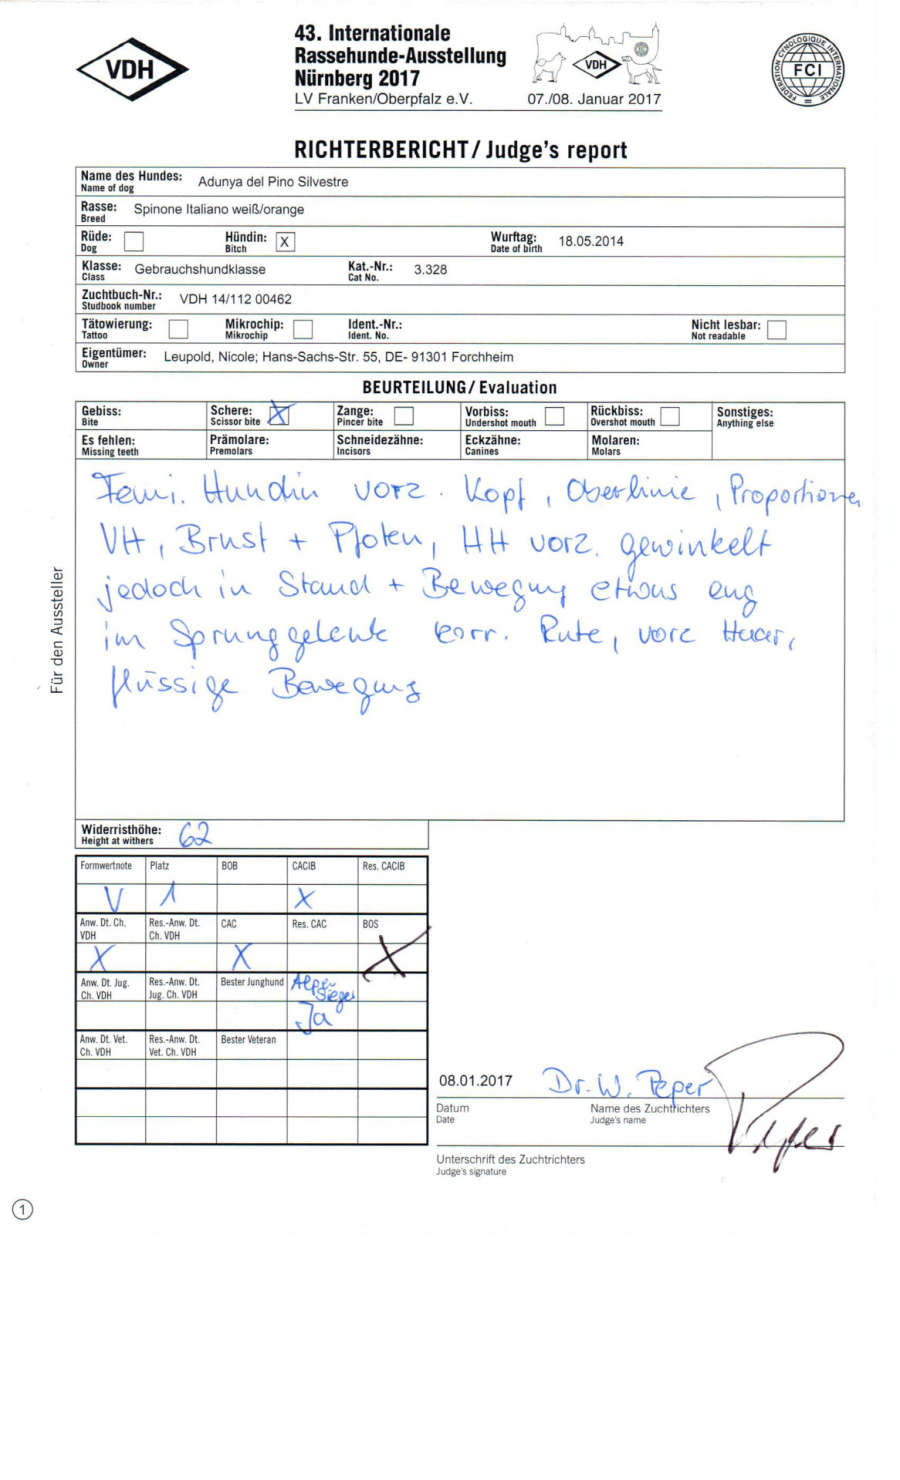 VDH
43. Internationale
Rassehunde-Ausstellung
Nürnberg 2017
LV Franken/Oberpfalz e.V.
VDH
07./08. Januar 2017
FEDERATION CYNOLOGIQUE INTERNATIONALE
FCI
RICHTERBERICHT/ Judge's report
Name des Hundes: Adunya del Pino Silvestre
Name of dog
Rasse: Spinone Italiano weiß/orange
Breed
Rüde: Hündin: X Wurftag: 18.05.2014
Dog Bitch Date of birth
Klasse: Gebrauchshundklasse Kat.-Nr.: 3.328
Class Cat No.
Zuchtbuch-Nr.: VDH 14/112 00462
Studbook number
Tätowierung: Mikrochip: Ident.-Nr.: Nicht lesbar:
Tattoo Mikrochip Ident. No. Not readable
Eigentümer: Leupold, Nicole; Hans-Sachs-Str. 55, DE- 91301 Forchheim
Owner
BEURTEILUNG/ Evaluation
Gebiss: Schere: X Zange: Vorbiss: Rückbiss: Sonstiges:
Bite Scissor bite Pincer bite Undershot mouth Overshot mouth Anything else
Es fehlen: Prämolare: Schneidezähne: Eckzähne: Molaren:
Missing teeth Premolars Incisors Canines Molars
Femi. Hündin vorz. Kopf, Oberlinie, Proportionen
VH, Brust + Pfoten, HH vorz. gewinkelt
jedoch in Stand + Bewegung etwas eng
im Sprunggelenk korr. Rute, vorz Haar,
flüssige Bewegung
Für den Aussteller
Widerristhöhe: 62
Height at withers
Formwertnote Platz BOB CACIB Res. CACIB
V 1 X
Anw. Dt. Ch. Res.-Anw. Dt. CAC Res. CAC BOS
VDH Ch. VDH
X X X
Anw. Dt. Jug. Res.-Anw. Dt. Bester Junghund Alpen
Ch. VDH Jug. Ch. VDH Sieger
Ja
Anw. Dt. Vet. Res.-Anw. Dt. Bester Veteran
Ch. VDH Vet. Ch. VDH
08.01.2017 Dr. W. Peper
Datum Name des Zuchtrichters
Date Judge's name
Peper
Unterschrift des Zuchtrichters
Judge's signature
1